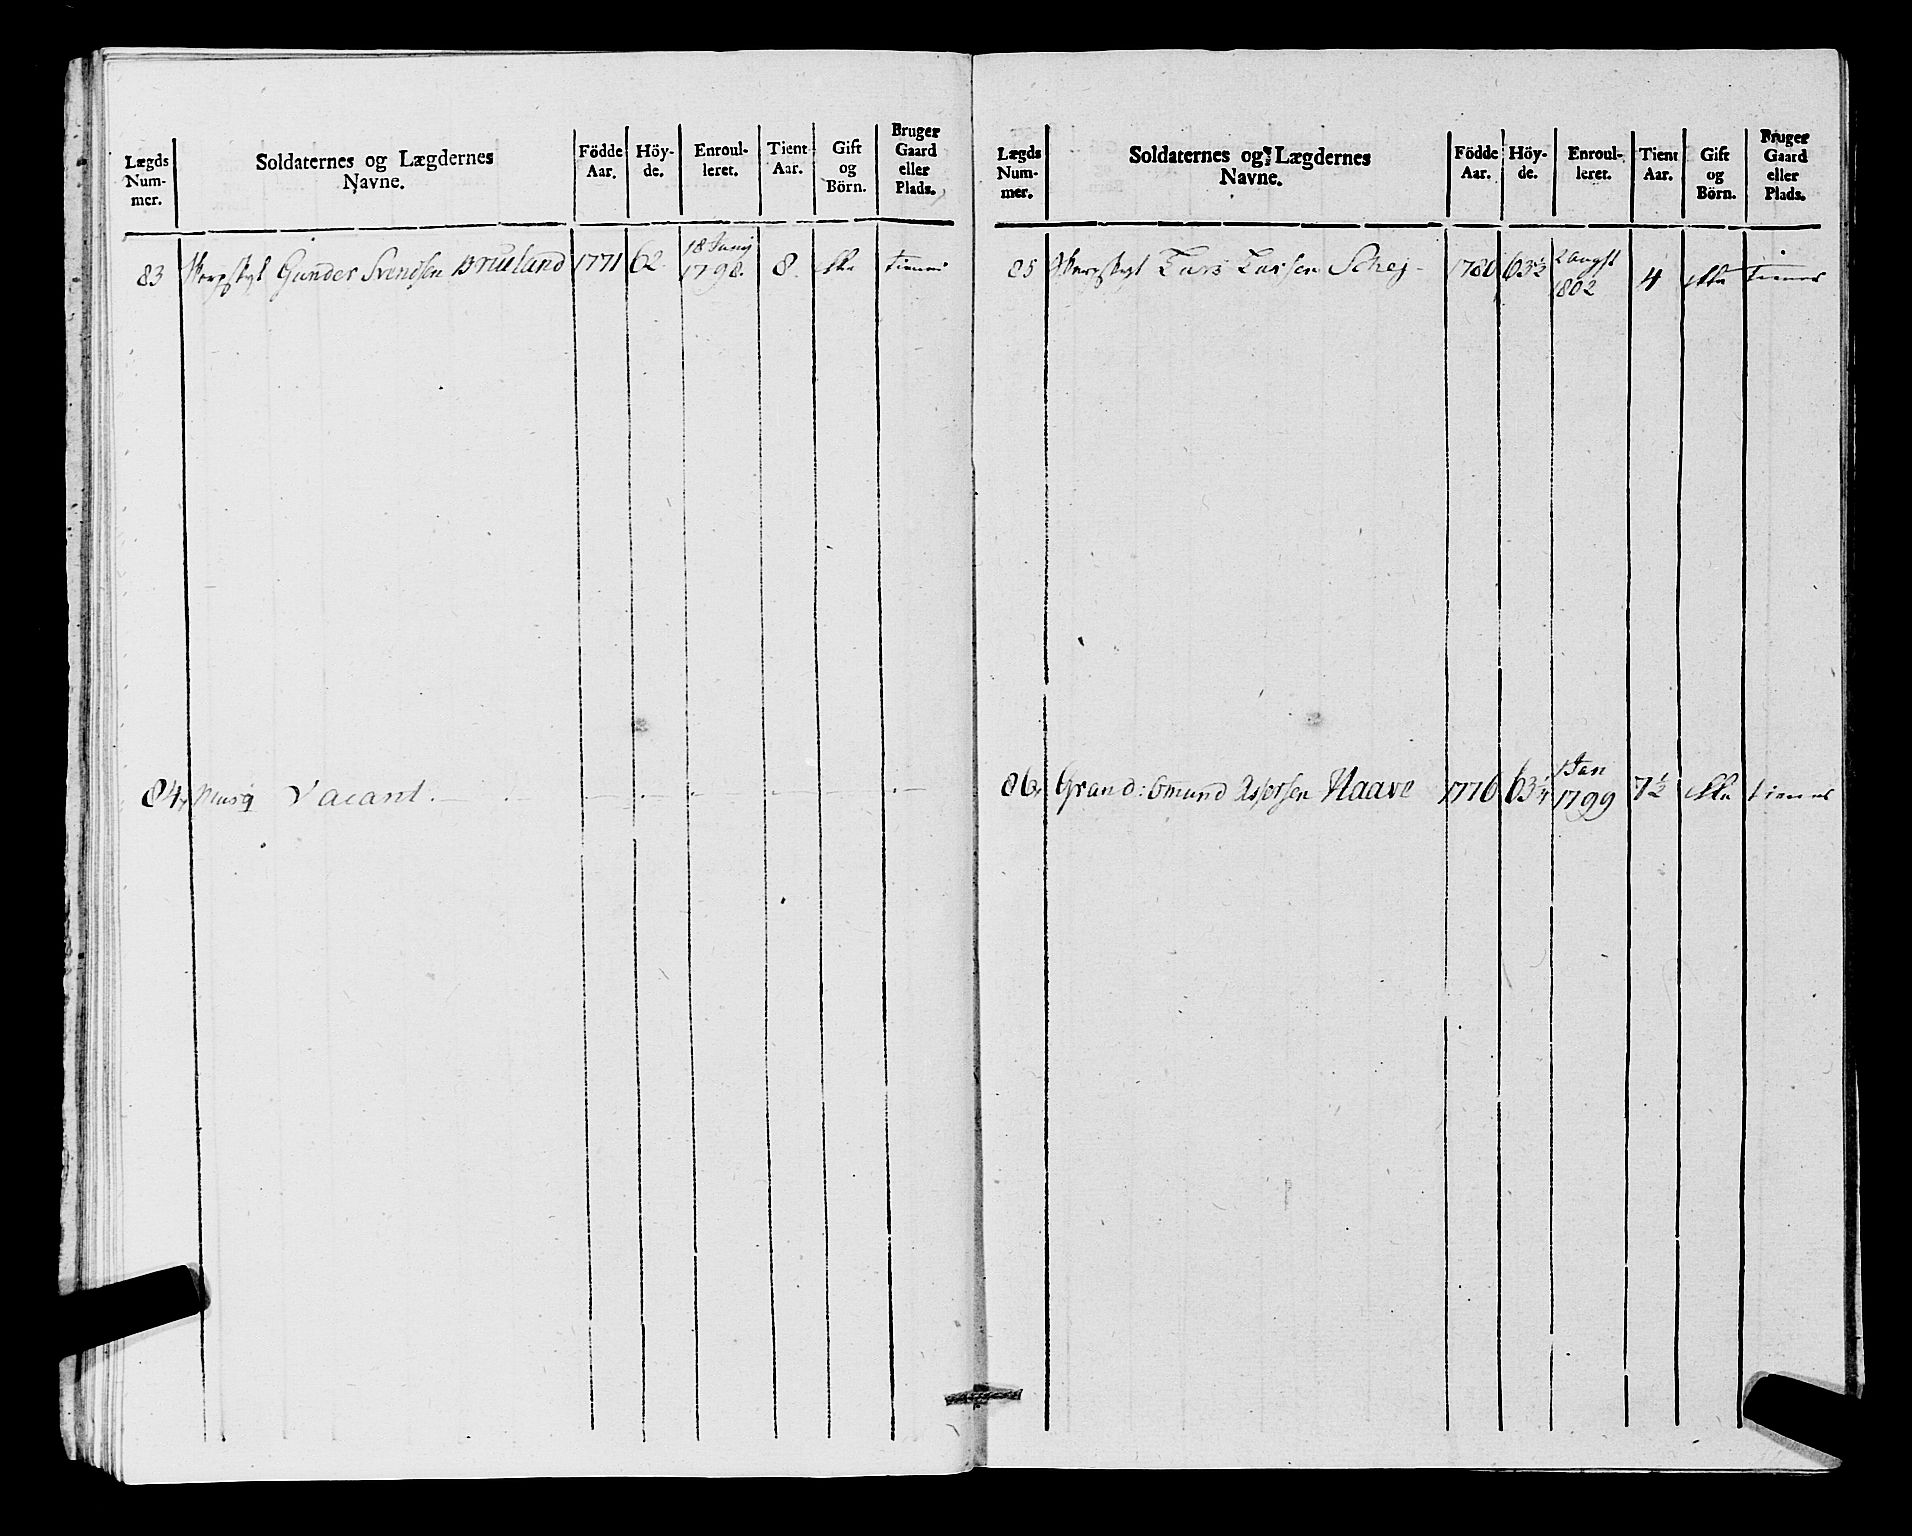 Lægds Num- mer.
Soldaternes og Lægdernes Navne.
Födde Aar.
Höy- de.
Enroul- leret.
Tient Aar.
Gift og Börn.
Bruger Gaard eller Plads.
83 Gunder Svendsen 1771 62. 18 Junij 1798. 8. tiener
84, Musq Vacant.
Lægds Num- mer.
Soldaternes og Lægdernes Navne.
Födde Aar.
Höy- de.
Enroul- leret.
Tient Aar.
Gift og Börn.
Bruger Gaard eller Plads.
85 Lars Larsen Schej 1780 63½ 2 augst 1802 4 tiener
86, Grand: Omund Haave 1776 63¼ 1 Jan 1799 7½ tiener